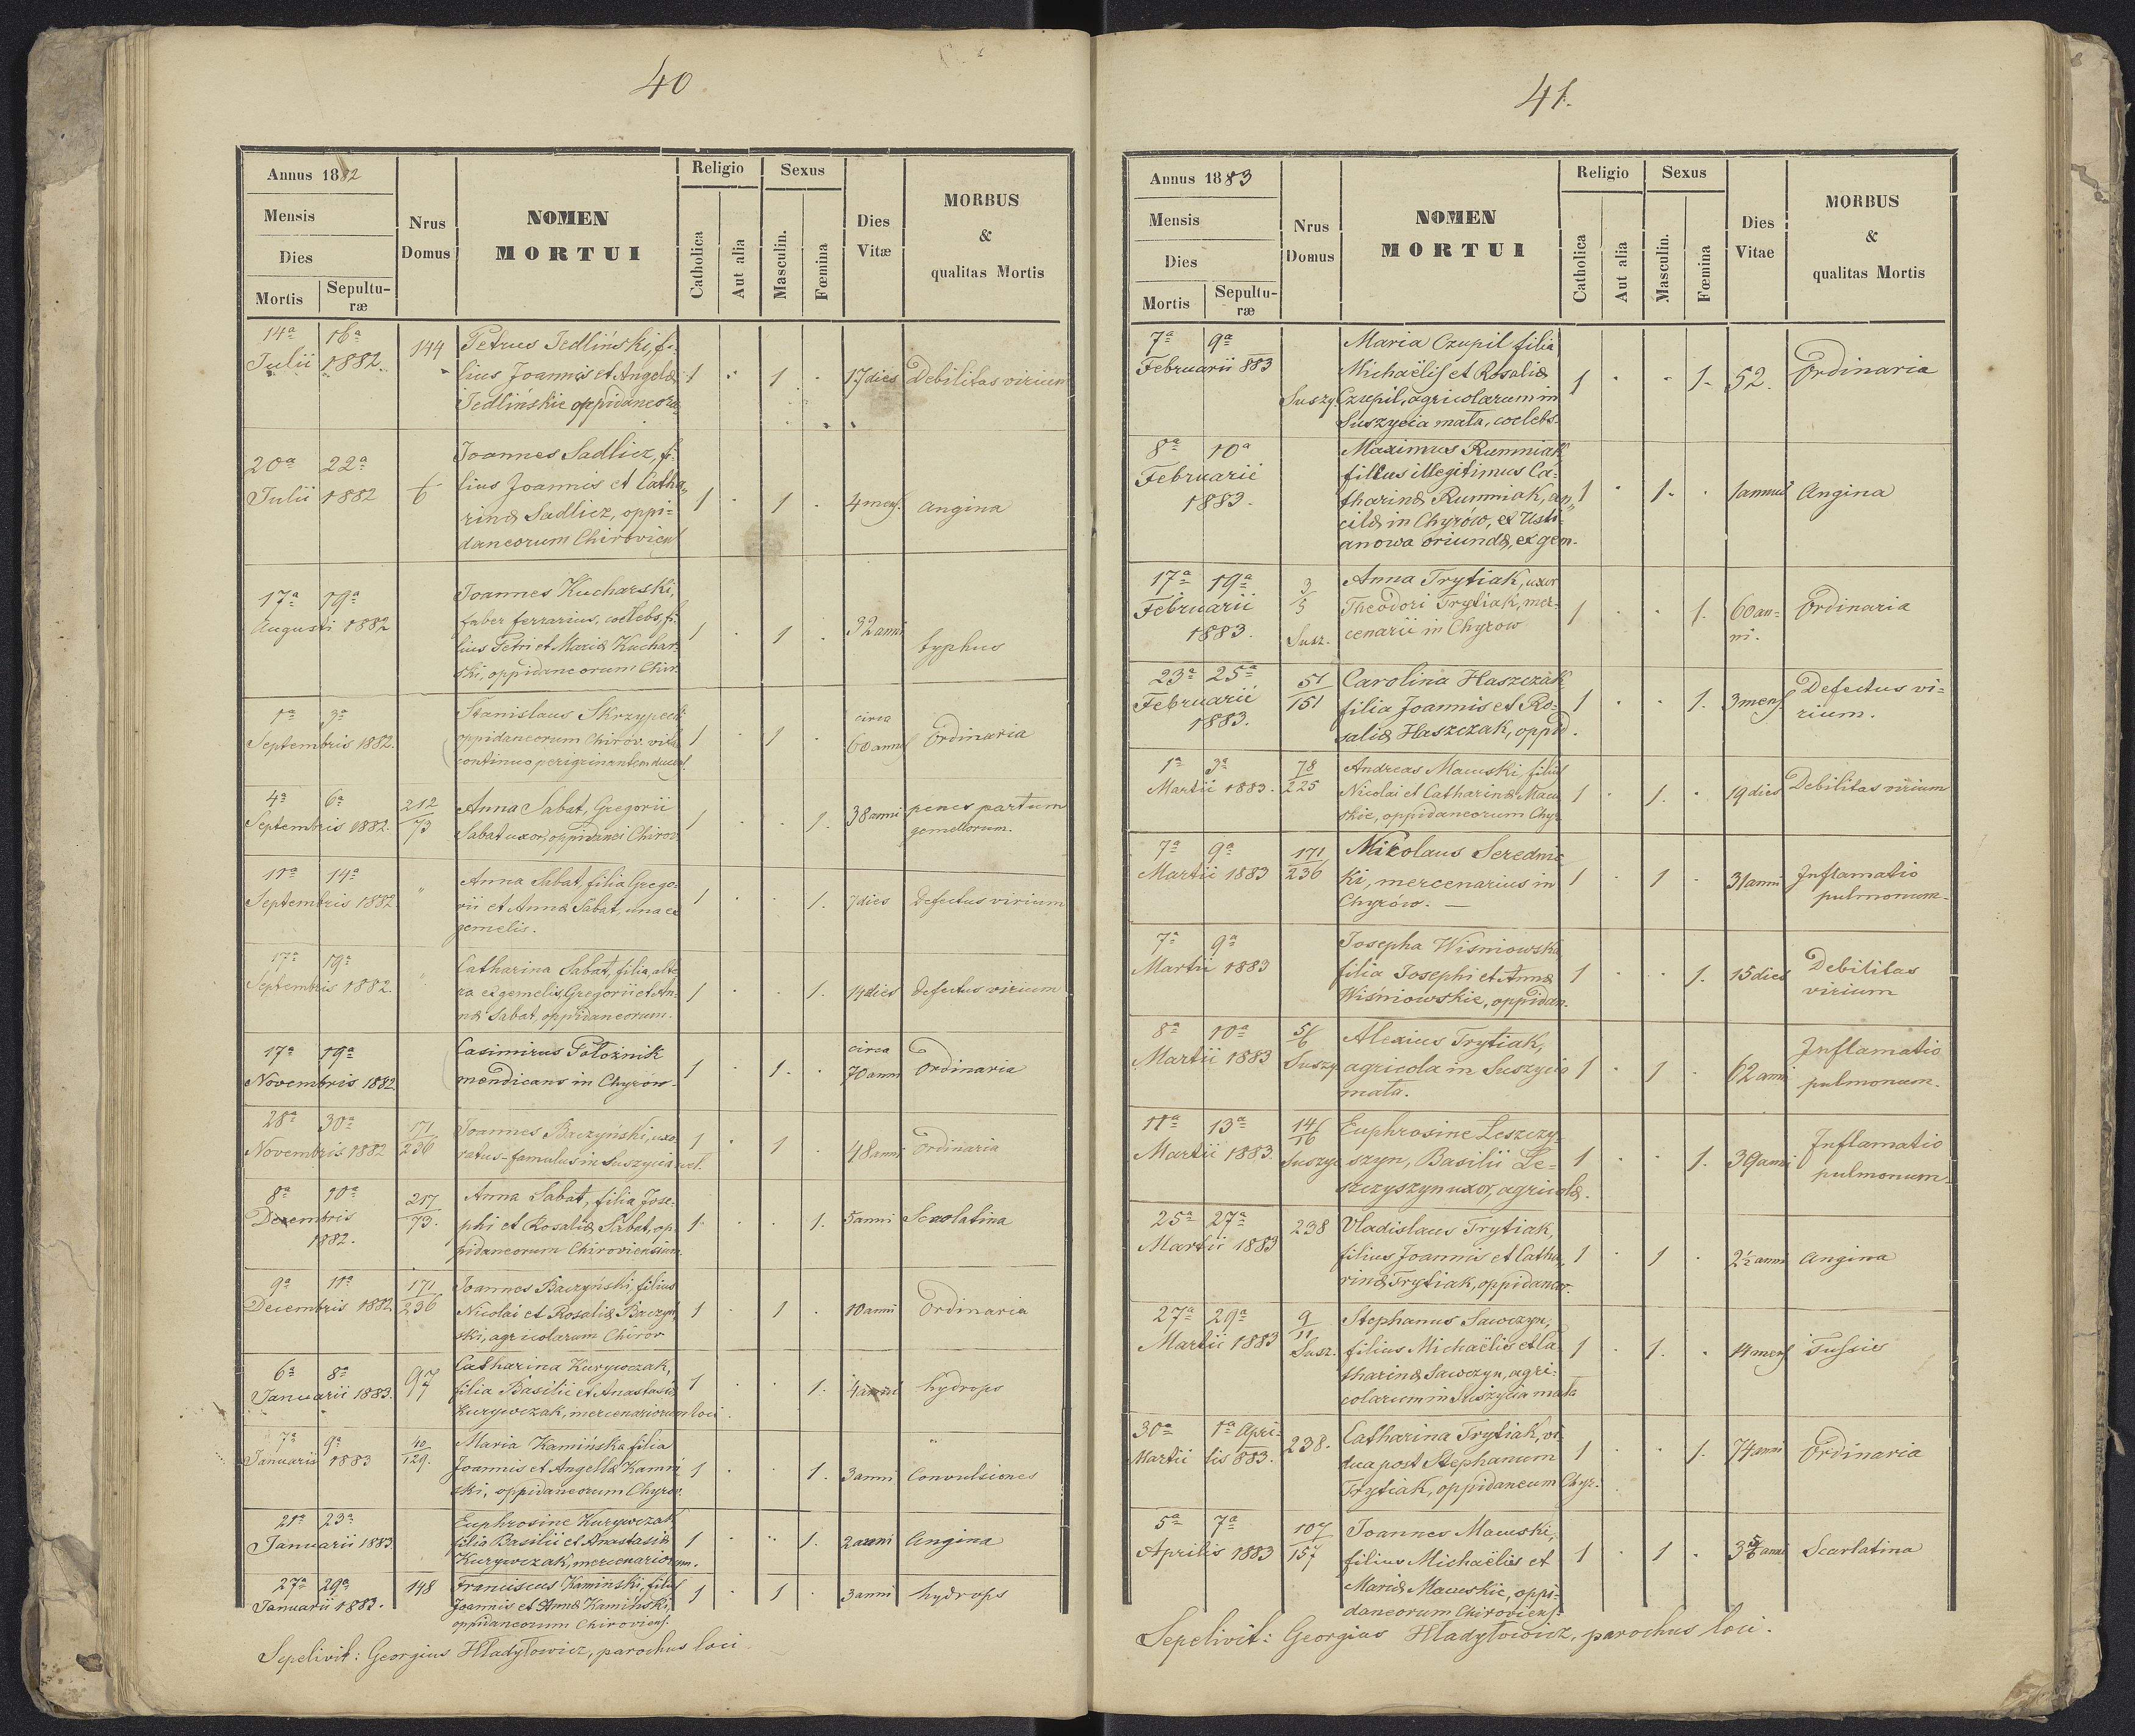 40
Annus 1882
Mensis
Dies
Mortis
Sepultu-
ræ
Nrus
Domus
NOMEN
MORTUI
Religio
Catholica
Aut alia
Sexus
Masculin.
Fœmina
Dies
Vitæ
MORBUS
&
qualitas Mortis
14ª 16ª
Julii 1882.
144
Petrus Jedliński, fi-
lius Joannis et Angelæ
Jedlinskie oppidaneoru
1 · 1 ·
17 dies
Debilitas virium
20ª 22ª
Julii 1882
6
Joannes Sadlicz, fi-
lius Joannis et Catha,,
rinæ Sadlicz, oppi-
daneorum Chirovien
1 · 1 ·
4 mens.
Angina
17ª 19ª
Augusti 1882
Joannes Kucharski,
faber ferrarius, coelebs, fi-
lius Petri et Mariæ Kuchar-
ski, oppidaneorum Chir.
1 · 1 ·
32 anni
typhus
1ª 3ª
Septembris 1882.
Stanislaus Skrzypecki
oppidaneorum Chirov. vitæ
continuo perigrinantem ducens.
1 · 1 ·
circa
60 annos
Ordinaria
4ª 6ª
Septembris 1882.
212
73
Anna Sabat, Gregorii
Sabat uxor, oppidanei Chirov.
1 · · 1.
38 anni
penes partum
gemellorum.
11ª 14ª
Septembris 1882.
"
Anna Sabat, filia Grego-
rii et Annæ Sabat, una ex
gemelis.
1 · · 1.
7 dies
Defectus virium
17ª 19ª
Septembris 1882.
"
Catharina Sabat, filia, alte
ra ex gemelis, Gregorii et An-
næ Sabat, oppidaneorum.
1 · · 1.
14 dies
Defectus virium
17ª 19ª
Novembris 1882
Casimirus Położnik
mendicans in Chyrów.
1 · 1. ·
circa
70 anni
Ordinaria
28ª 30ª
Novembris 1882
171
236
Joannes Baczyński, uxo
ratus - famulus in Suszycia vel.
1 · 1 ·
48 anni
Ordinaria
8ª 10ª
Dezembris
1882.
217
73.
Anna Sabat, filia Jose-
phi et Rosaliæ Sabat, op-
pidaneorum Chiroviensium.
1 · · 1.
5 anni
Scarlatina
9ª 11ª
Decembris 1882
171
236
Joannes Baczyński, filius
Nicolai et Rosaliæ Baczyn
ski, agricolarum Chirov
1 · 1 ·
10 anni
Ordinaria
6ª 8ª
Januarii 1883.
97
Catharina Kurywczak,
filia Basilii et Anastasiæ
Kurywczak, mercenariorum loci.
1 · · 1.
4 anni
hydrops
7ª 9ª
Januarii 1883
40
129.
Maria Kamińska filia
Joannis et Angellæ Kamin
ski, oppidaneorum Chyrov.
1 · · 1.
3 anni
Convulsiones
21ª 23ª
Januarii 1883
Euphrosine Kurywczak
filia Basilii et Anastasiæ
Kurywczak, mercenariorum.
1 · · 1.
2 anni
Angina
27ª 29ª
Januarii 1883.
148
Franciscus Kaminski, filius
Joannis et Annæ Kaminski,
oppidaneorum Chiroviens.
1 · 1 ·
3 anni
hydrops
Sepelivit: Georgius Hladyłowicz, parochus loci
41.
Annus 1883
Mensis
Dies
Mortis
Sepultu-
ræ
Nrus
Domus
NOMEN
MORTUI
Religio
Catholica
Aut alia
Sexus
Masculin.
Fœmina
Dies
Vitae
MORBUS
&
qualitas Mortis
7ª 9ª
Februarii 883
Suszy
Maria Czupil filia
Michaëlis et Rosaliæ
Czupil, agricolarum in
Suszycia mała, coelebs.
1 · · 1.
52.
Ordinaria
8ª 10ª
Februarii
1883.
Maximus Rumniak
filius illegitimus Ca-
tharinæ Rumniak, an,,
cilæ in Chyrów, ex Usti-
anowa oriundæ, ex gem.
1 · 1. ·
1 annus
Angina
17ª 19ª
Februarii
1883.
3
5
Susz.
Anna Trytiak, uxor
Theodori Trytiak, mer-
cenarii in Chyrow
1 · · 1.
60 an-
ni.
Ordinaria
23ª 25ª
Februarii
1883.
51
151
Carolina Haszczak
filia Joannis et Ro-
saliæ Haszczak, oppid.
1 · · 1.
3 mens.
Defectus vi-
rium.
1ª 3ª
Martii 1883.
78
225
Andreas Macuski, filius
Nicolai et Catharinæ Macu
skie, oppidaneorum Chyr
1 · 1. ·
19 dies
Debilitas virium
7ª 9ª
Martii 1883
171
236
Nikolaus Serednic
ki, mercenarius in
Chyrów. —
1 · 1 ·
31 anni
Inflamatio
pulmonum.
7ª 9ª
Martii 1883
Josepha Wisniowska
filia Josephi et Annæ
Wiśniowskie, oppidan.
1 · · 1.
15 dies
Debilitas
virium
8ª 10ª
Martii 1883
5/6
Suszy.
Alexius Trytiak,
agricola in Suszycia
mała.
1 · 1 ·
62 anni
Inflamatio
pulmonum.
11ª 13ª
Martii 1883.
14
16
Suszyc
Euphrosine Leszczy-
szyn, Basilii Le-
szczyszyn uxor, agricolæ.
1 · · 1.
39 anni
Inflamatio
pulmonum.
25ª 27ª
Martii 1883
238
Vladislaus Trytiak,
filius Joannis et Catha,,
rinæ Trytiak, oppidaneor.
1 · 1 ·
2½ anni
Angina
27ª 29ª
Martii 1883
9
11
Susz.
Stephanus Sawczyn,
filius Michaëlis et Ca-
tharinæ Sawczyn, agri-
colarum in Suszycia mała
1 · 1. ·
14 mens
Tussis
30ª 1ª Apri-
Martii lis 883.
238.
Catharina Trytiak, vi
dua post Stephanum
Trytiak, oppidaneum Chyr.
1 · · 1.
74 anni
Ordinaria
5ª 7ª
Aprilis 1883
107
157
Joannes Macuski,
filius Michaëlis et
Mariæ Macuskie, oppi-
daneorum Chiroviens.
1 · 1 ·
3 5/6 anni
Scarlatina
Sepelivit: Georgius Hladyłowicz, parochus loci.